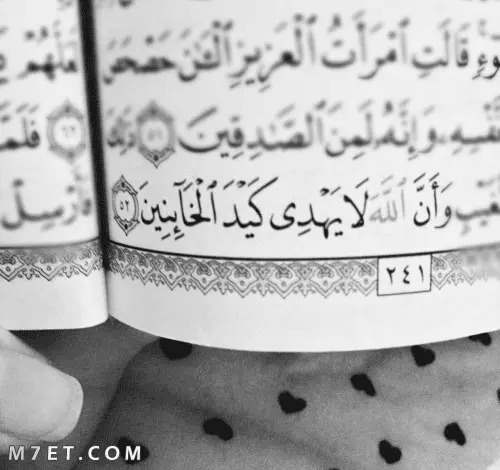 قَالَتِ ٱمْرَأَتُ ٱلْعَزِيزِ ٱلْـَٰٔنَ حَصْحَصَ
وَإِنَّهُۥ لَمِنَ ٱلصَّـٰدِقِينَ ٥١ ذَٰلِكَ
وَأَنَّ ٱللَّهَ لَا يَهْدِى كَيْدَ ٱلْخَآئِنِينَ ٥٢
٢٤١
٦٢
فَأَرْسِلْ
M7ET.COM